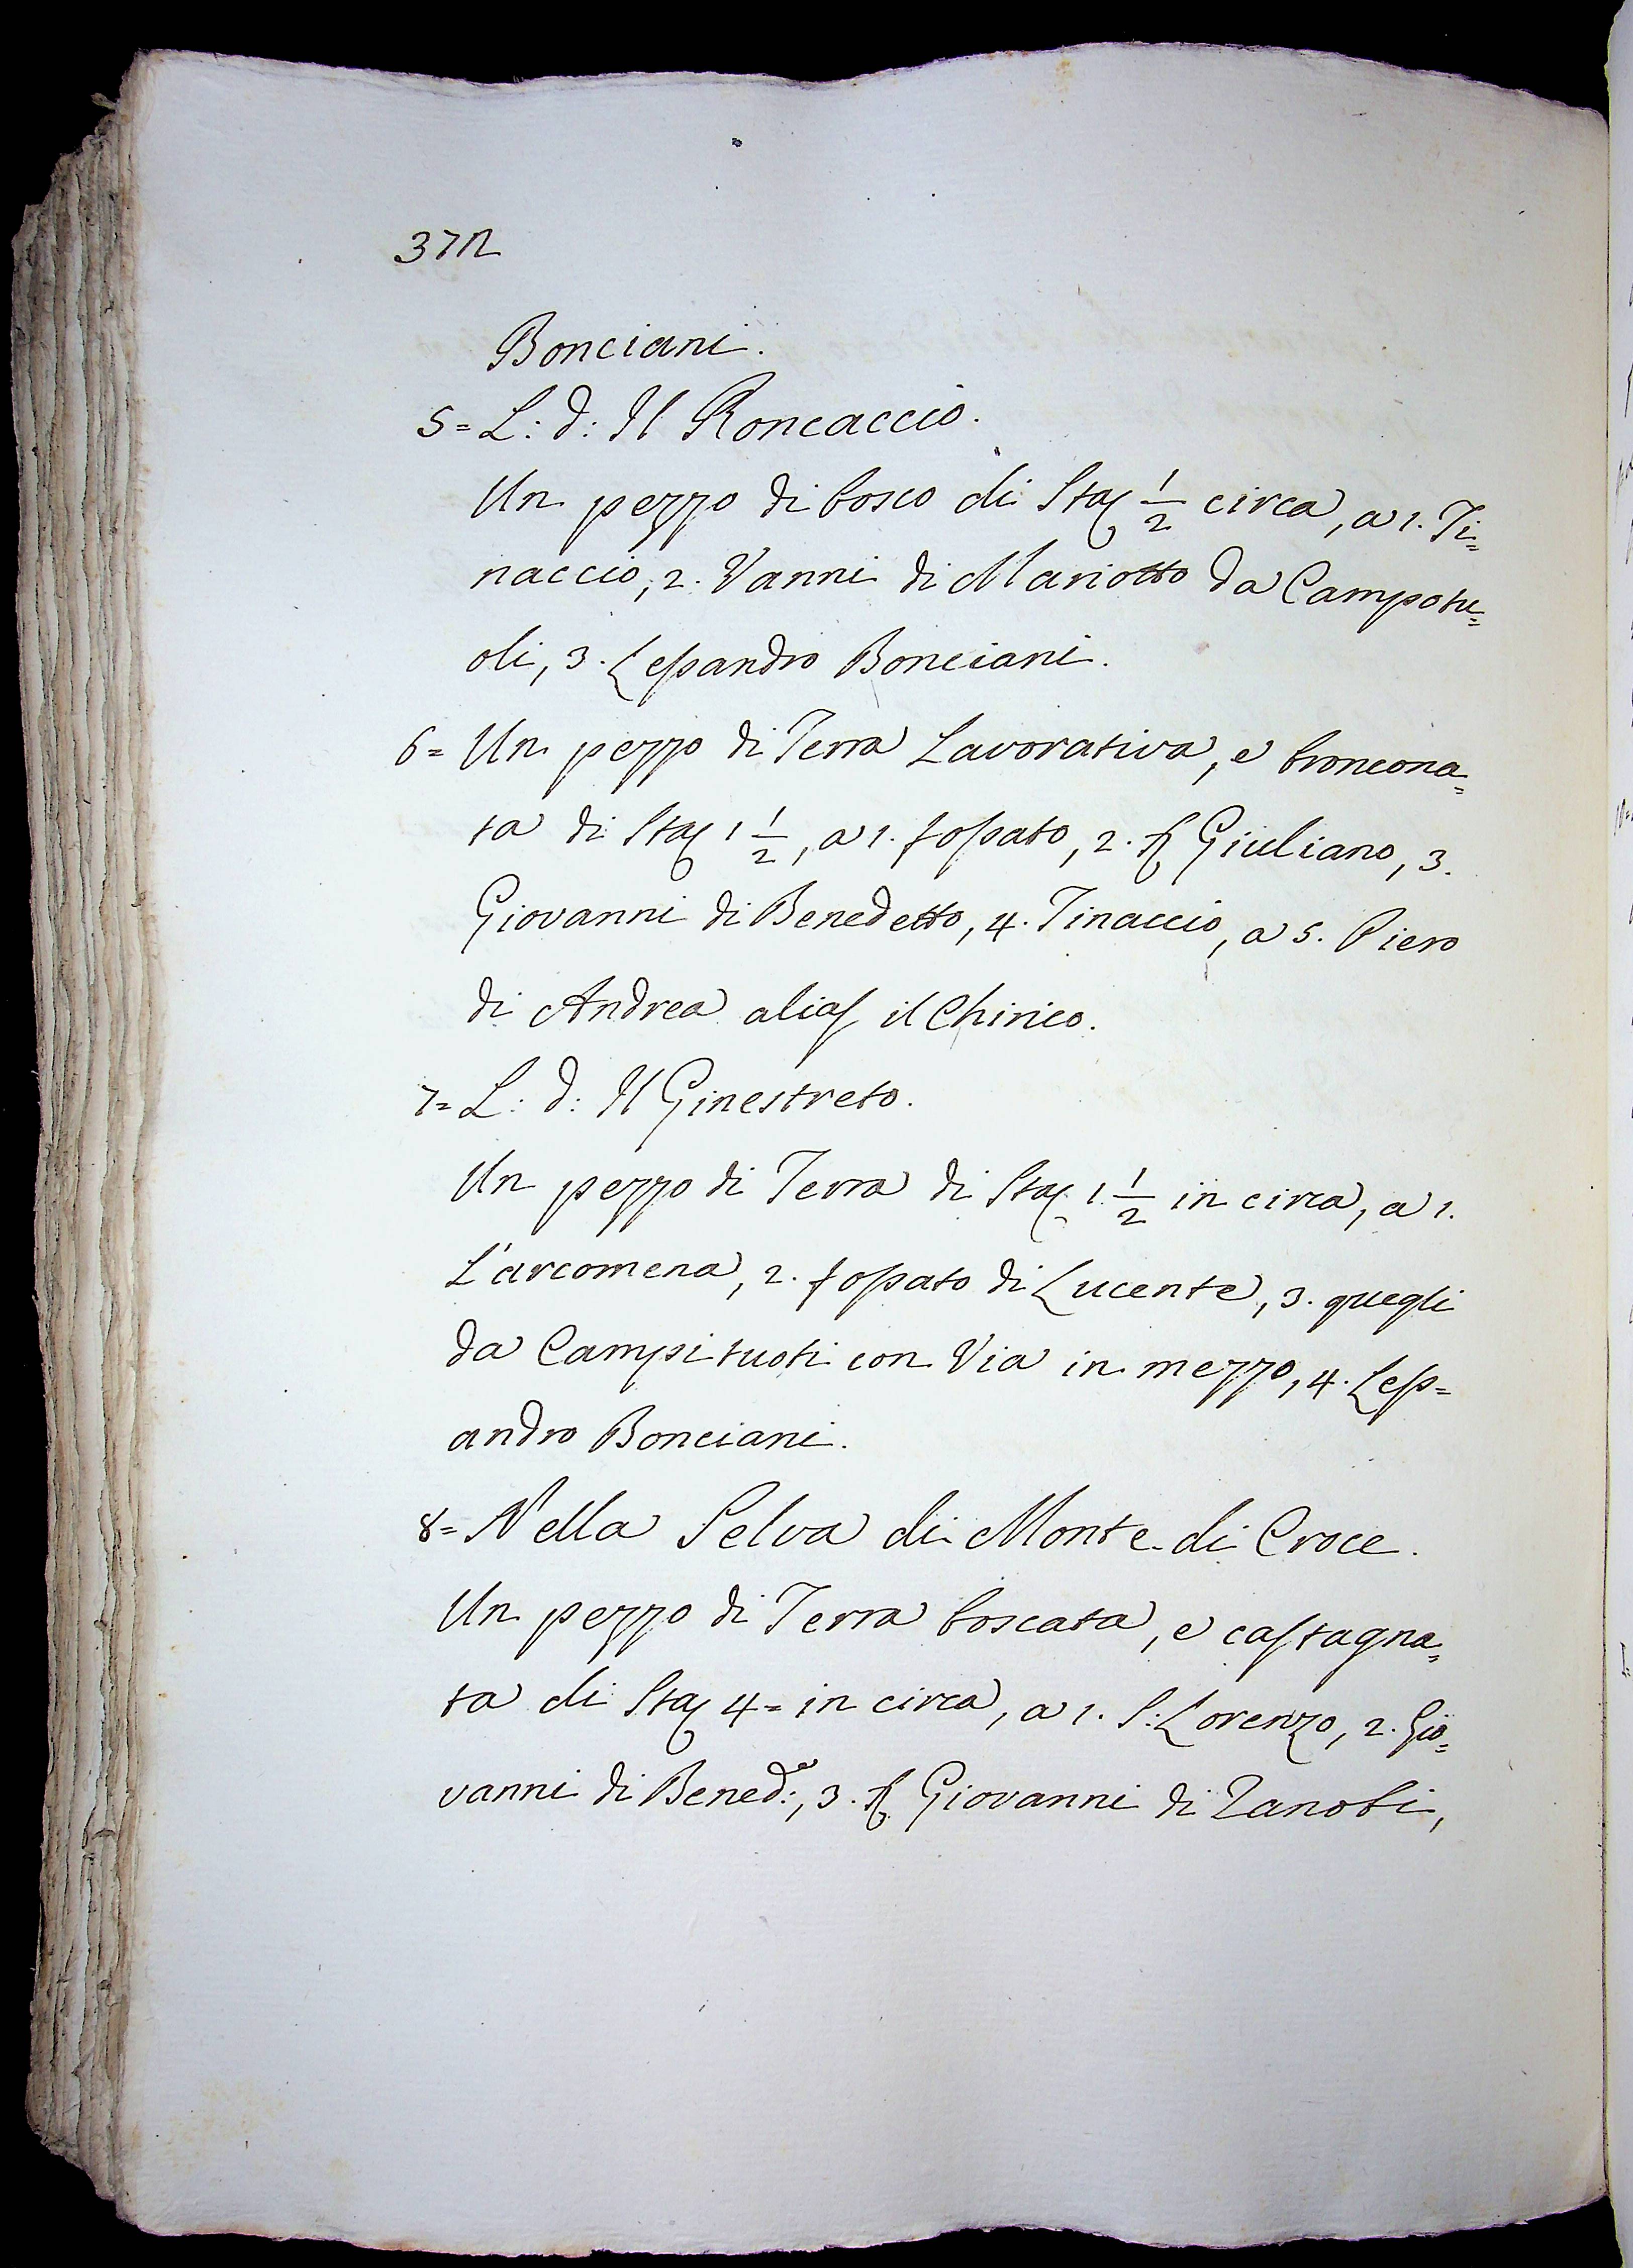 372
Bonciani.
5= L: d: Il Roncaccio.
Un pezzo di bosco di Sta 1/2 circa, a 1. Ti=
naccio, 2. Vanni di Mariotto da Campotu=
oli, 3. Lessandro Bonciani.
6= Un pezzo di Terra Lavorativa, e broncona=
ta di Sta 1 1/2, a 1. fossato, 2. Giuliano, 3.
Giovanni di Benedetto, 4. Tinaccio, a 5. Piero
di Andrea alias il Chirico.
7= L: d: Il Ginestreto.
Un pezzo di Terra di Sta 1. 1/2 in circa, a 1.
L'arcomena, 2. fossato di Lucente, 3. quegli
da Campituoti con Via in mezzo, 4. Less=
andro Bonciani.
8= Nella Selva di Monte di Croce.
Un pezzo di Terra boscata, e castagna=
ta di Sta 4= in circa, a 1. S: Lorenzo, 2. Gio=
vanni di Bened:º, 3. Giovanni di Zanobi,